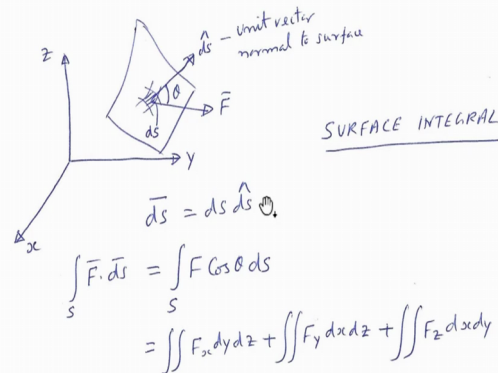 d̂s - unit vector
normal to surface
z
θ
F̄
ds
SURFACE INTEGRAL
y
x
d̄s = ds d̂s
∫_S F̄·d̄s = ∫_S F Cosθ ds
= ∬ F_x dydz + ∬ F_y dxdz + ∬ F_z dxdy